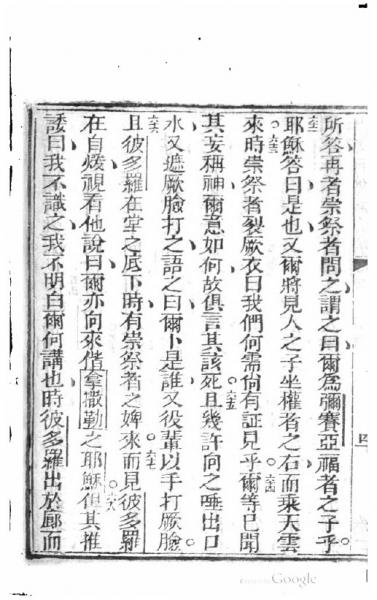 所答再者崇祭者問之謂之曰爾為彌賽亞福者之子乎○
六二耶穌答曰是也又爾將見人之子坐權者之右而乘天雲
來○六三時崇祭者裂厥衣曰我們何需何有証見乎○六四爾等已聞
其妄稱神爾意如何故俱言其該死○六五且幾許向之唾出口
水又遮厥臉打之語之曰爾卜是誰又役輩以手打厥臉○
六六且彼多羅在堂之底下時有崇祭者之婢來○六七而見彼多羅
在自煖視看他說曰爾亦向來偕拿撒勒之耶穌○六八但其推
諉曰我不識之我不明白爾何講也時彼多羅出於廊而
四
Google